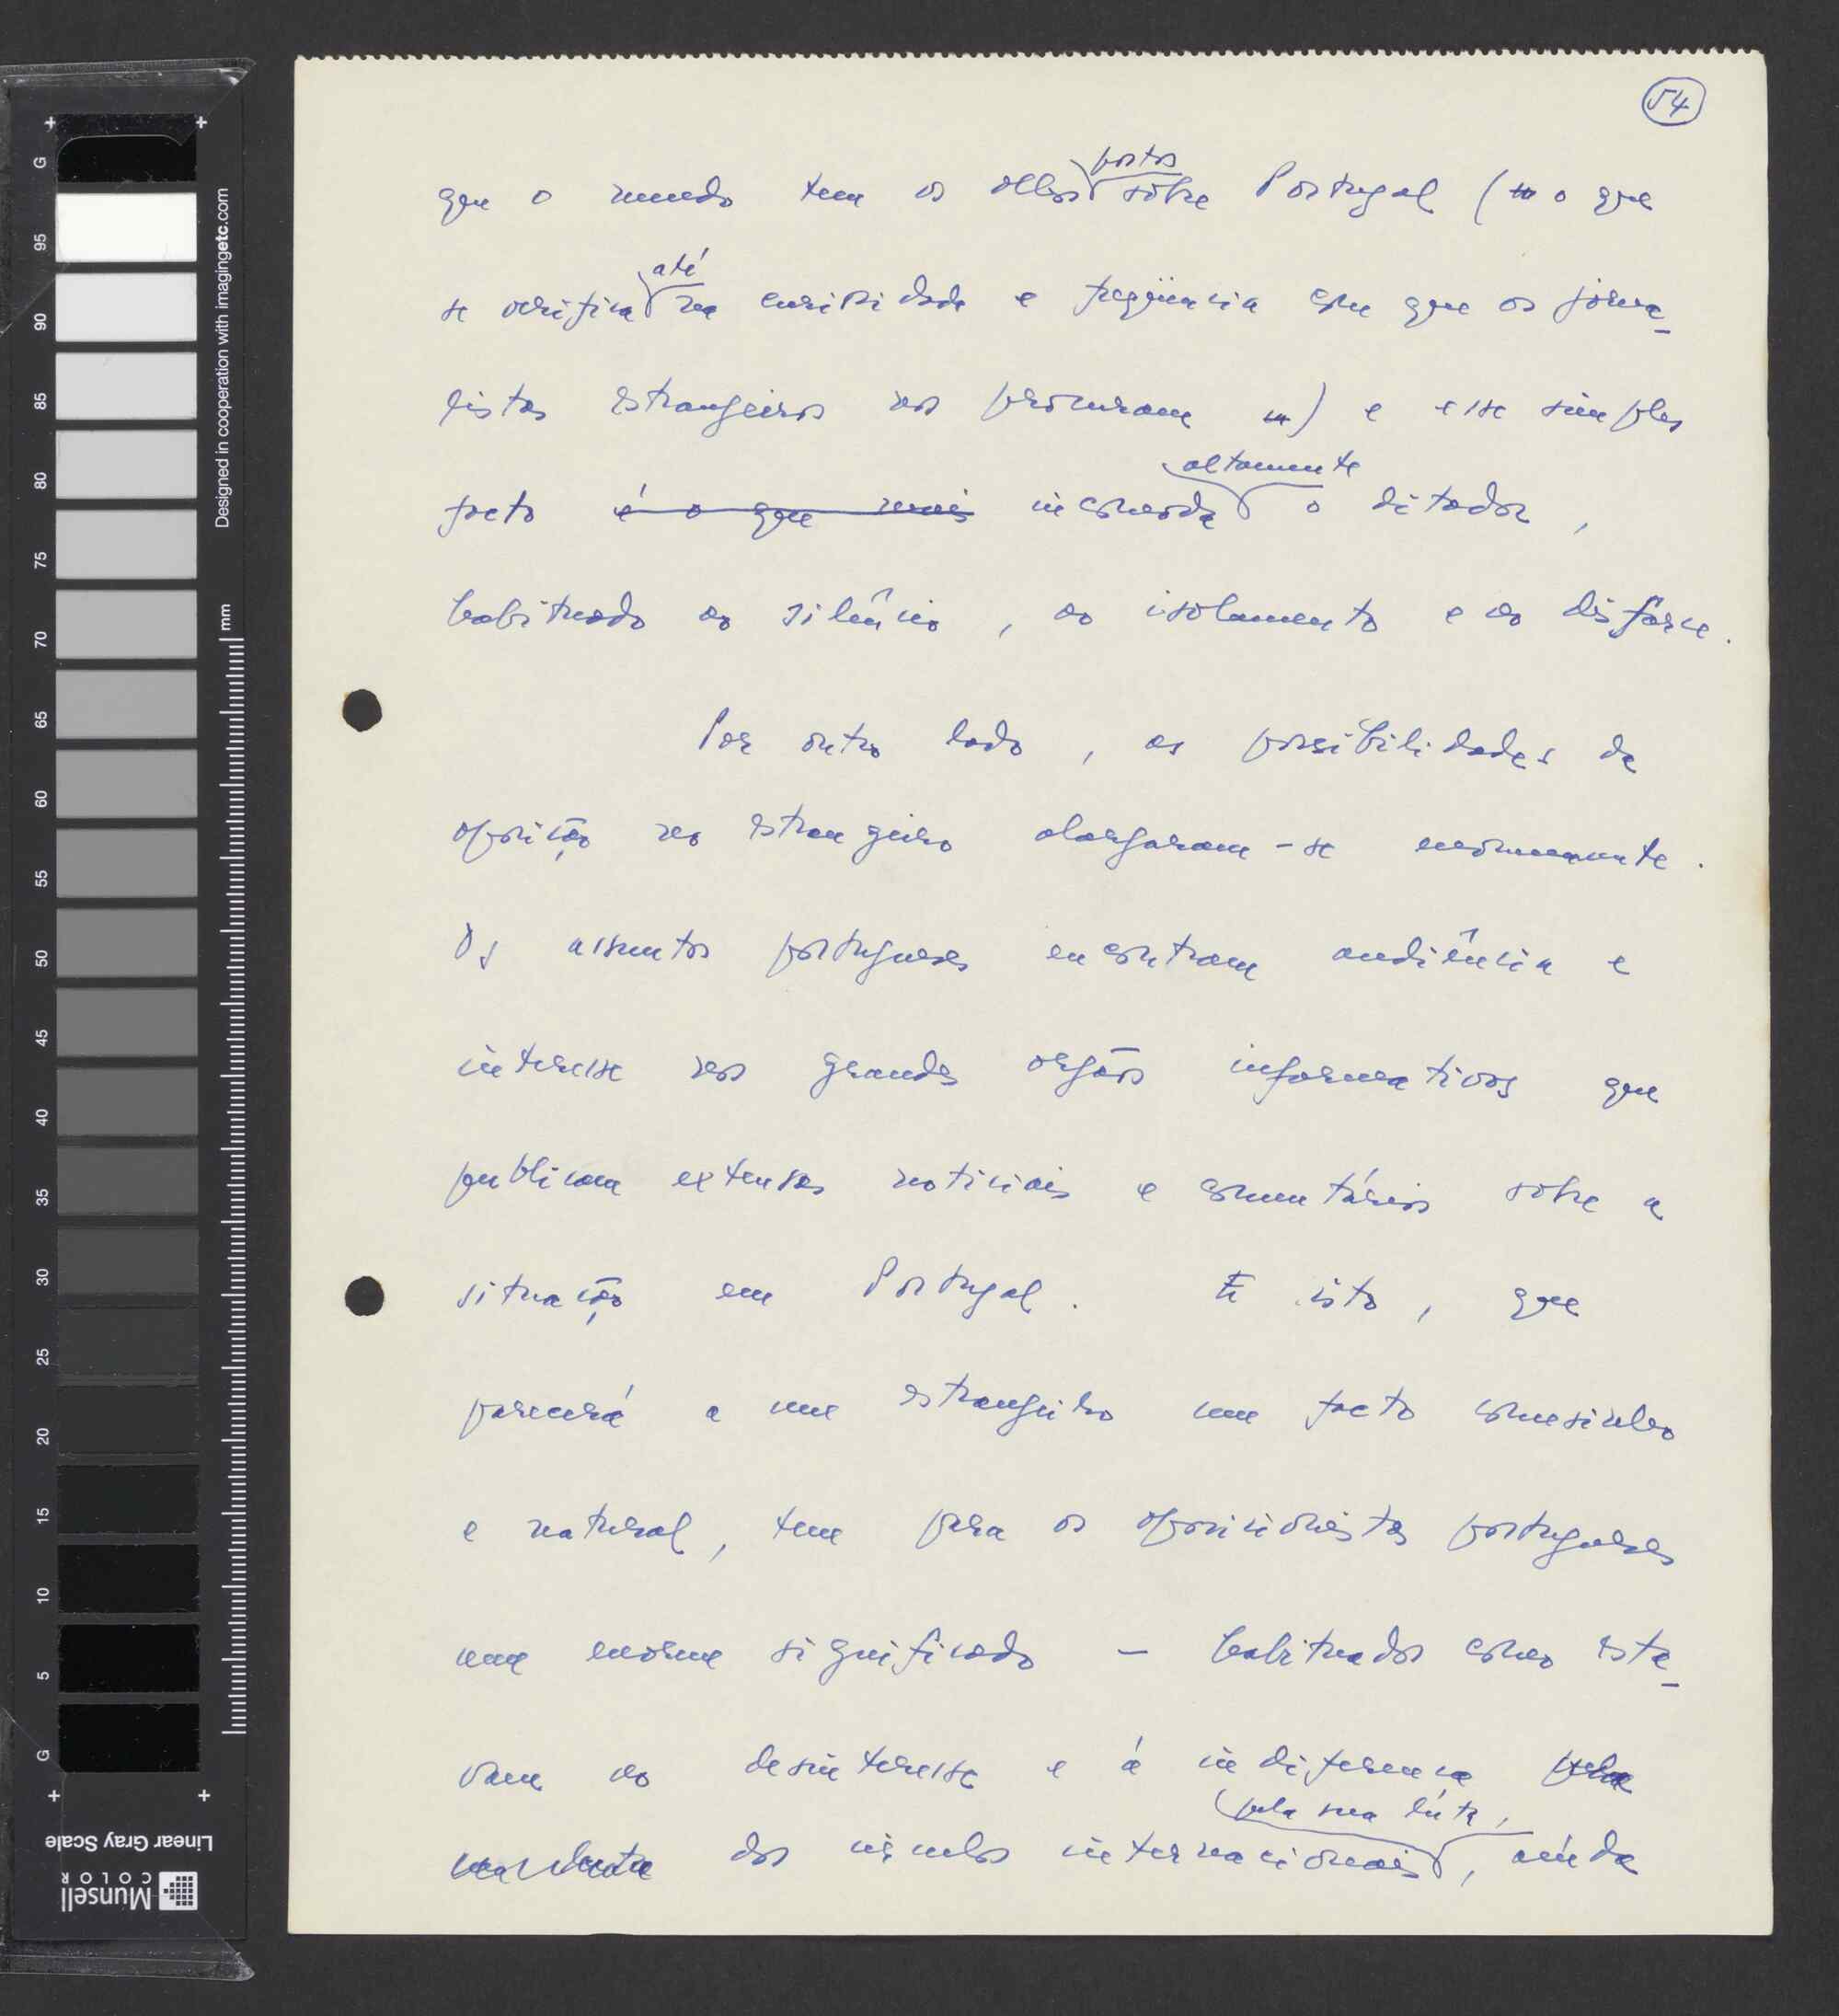 54
que o mundo tem os olhos postos sôbre Portugal ( o que
se verifica até na curiosidade e freqüencia com que os jorna-
listas estrangeiros nos procuram ) e esse simples
facto é o que mais incomoda altamente o ditador,
habituado ao silêncio, ao isolamento e ao disfarce.
Por outro lado, as possibilidades da
oposição no estrangeiro alargaram-se enormemente.
Os assuntos portugueses encontram audiência e
interesse nos grandes orgãos informativos que
publicam extensas noticiais e comentários sobre a
situação em Portugal. E isto, que
parecerá a um estrangeiro um facto comesinho
e natural, tem para os oposicionistas portugueses
um enorme significado - habituados como esta-
vam ao desinteresse e á indiferença pela
sua luta dos circulos internacionais pela sua luta, ainda
G 95 90 85 80 75 70 65 60 55 50 45 40 35 30 25 20 15 10 5 G
Designed in cooperation with imagingetc.com
mm
Linear Gray Scale
Munsell
COLOR